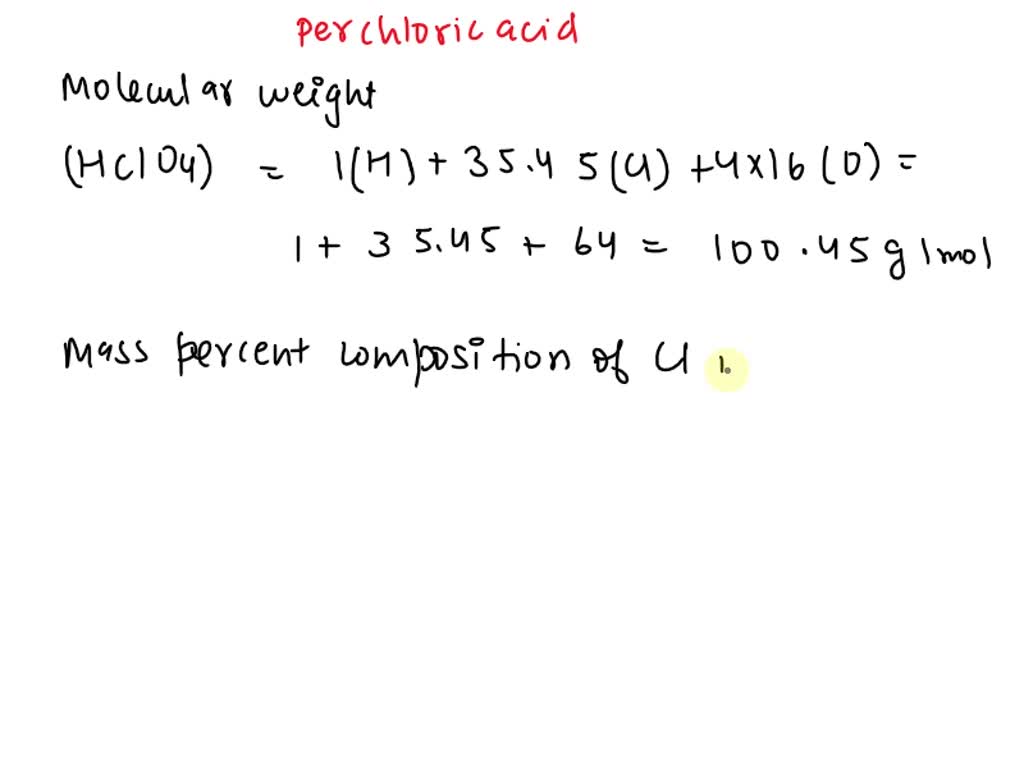 perchloric acid
Molecular weight
(HClO4) = 1(H) + 35.45(Cl) + 4x16(O) =
1 + 35.45 + 64 = 100.45 g/mol
Mass percent composition of Cl